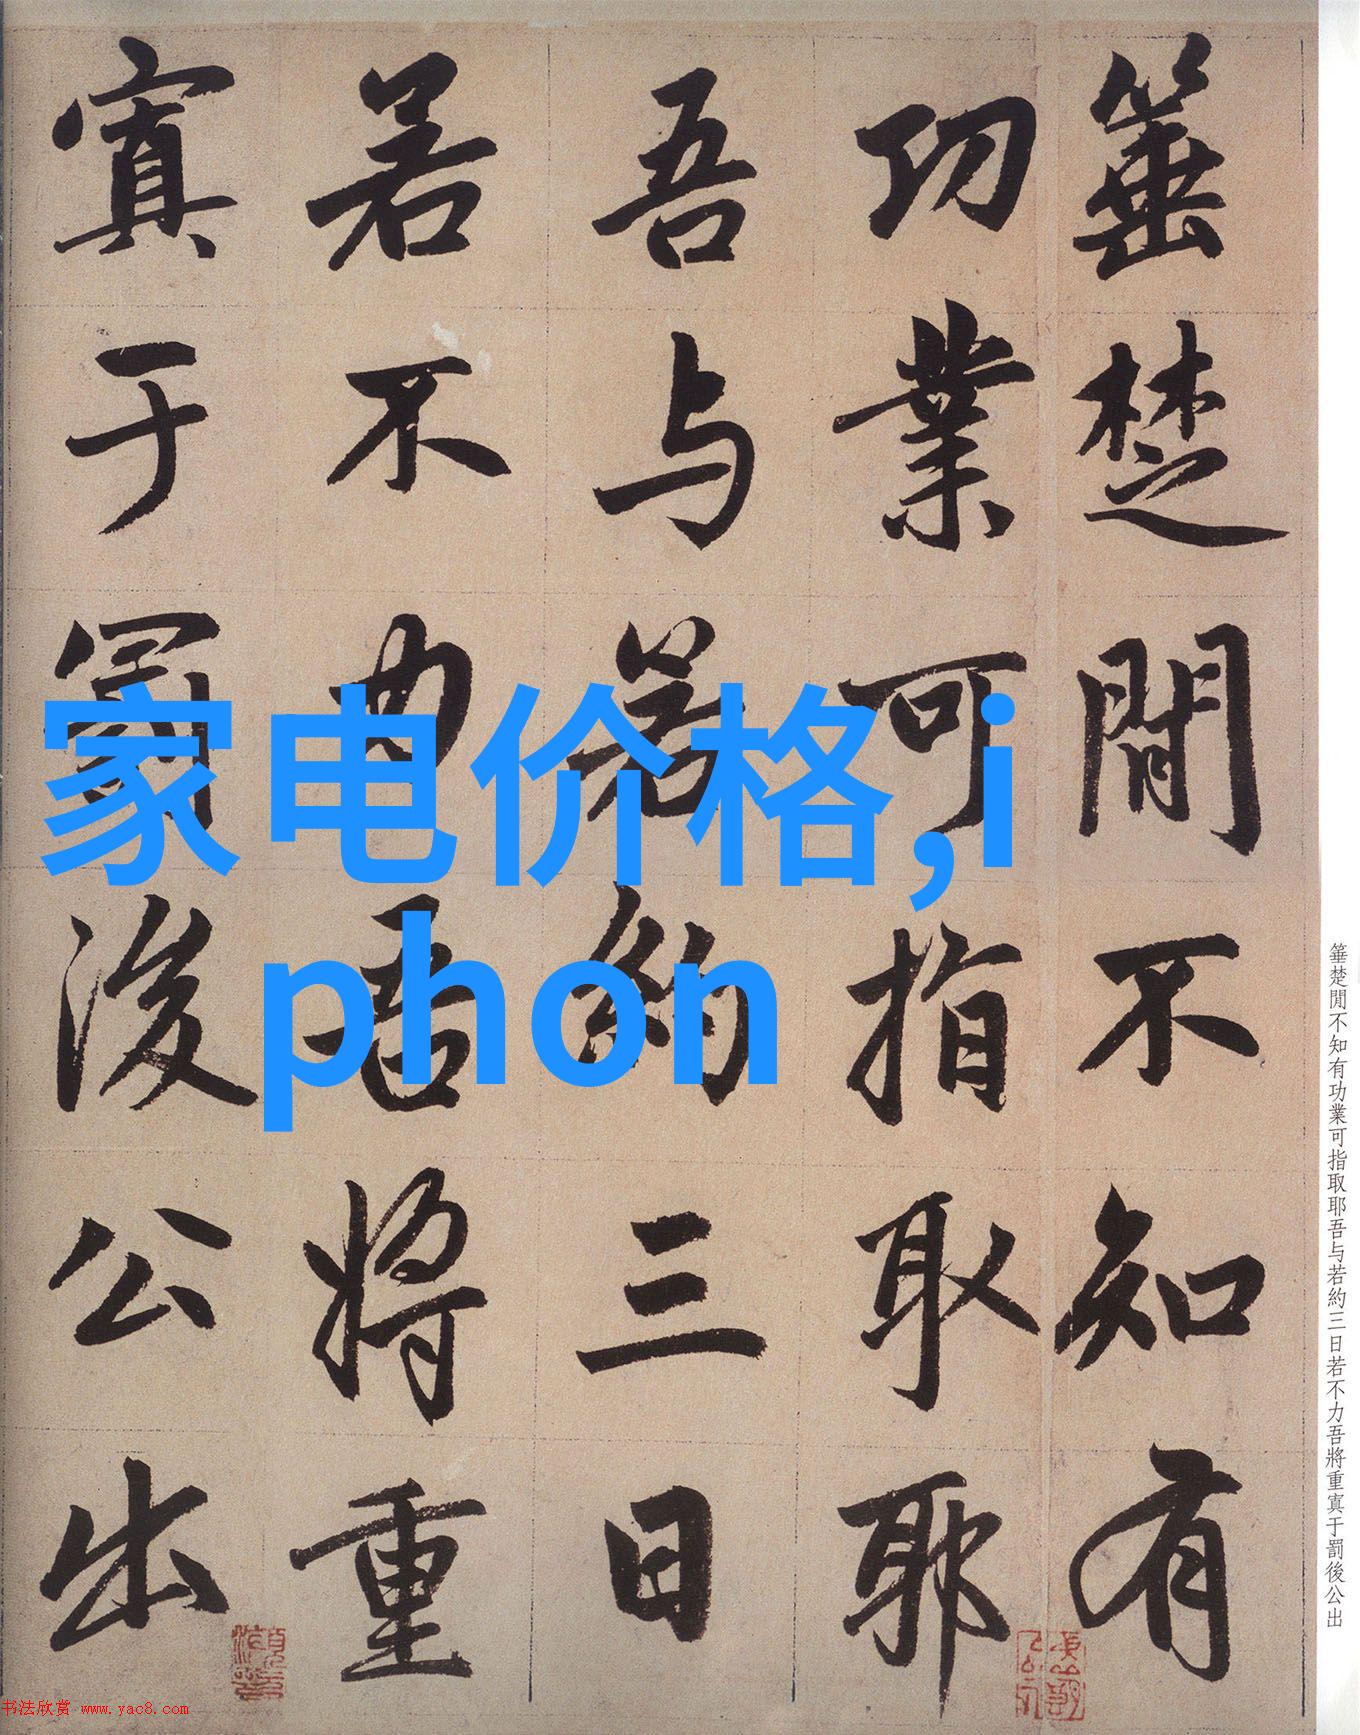 箠楚閒不知有
功業可指取耶
吾与若約三日
若不力吾將重
寘于罰後公出
家电价格,i
phon
箠楚閒不知有功業可指取耶吾与若約三日若不力吾將重寘于罰後公出
书法欣赏 www.yac8.com